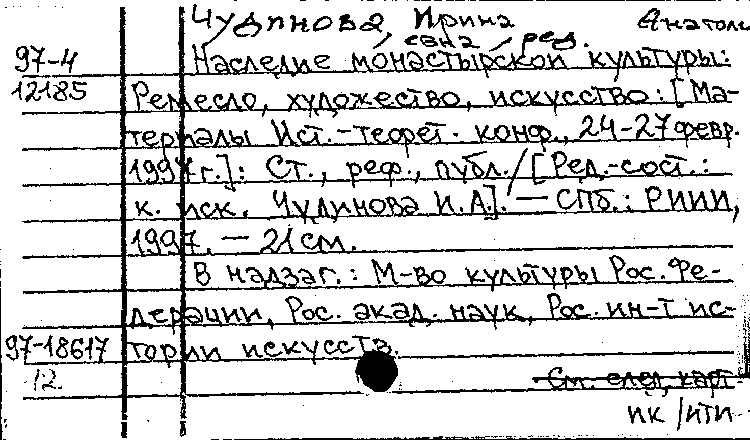 Чудинова, Ирина Анатоль
евна, ред.
97-4 Наследие монастырской культуры:
12185 Ремесло, художество, искусство: [Ма-
териалы Ист.-теорет. конф., 24-27 февр.
1997 г.]: Ст., реф., публ. / [Ред.-сост.:
к. иск. Чудинова И.А.]. — СПб.: РИИИ,
1997. — 21 см.
В надзаг.: М-во культуры Рос. Фе-
дерации, Рос. акад. наук, Рос. ин-т ис-
97-18617 тории искусств.
12. См. след. карт.
пк / нти